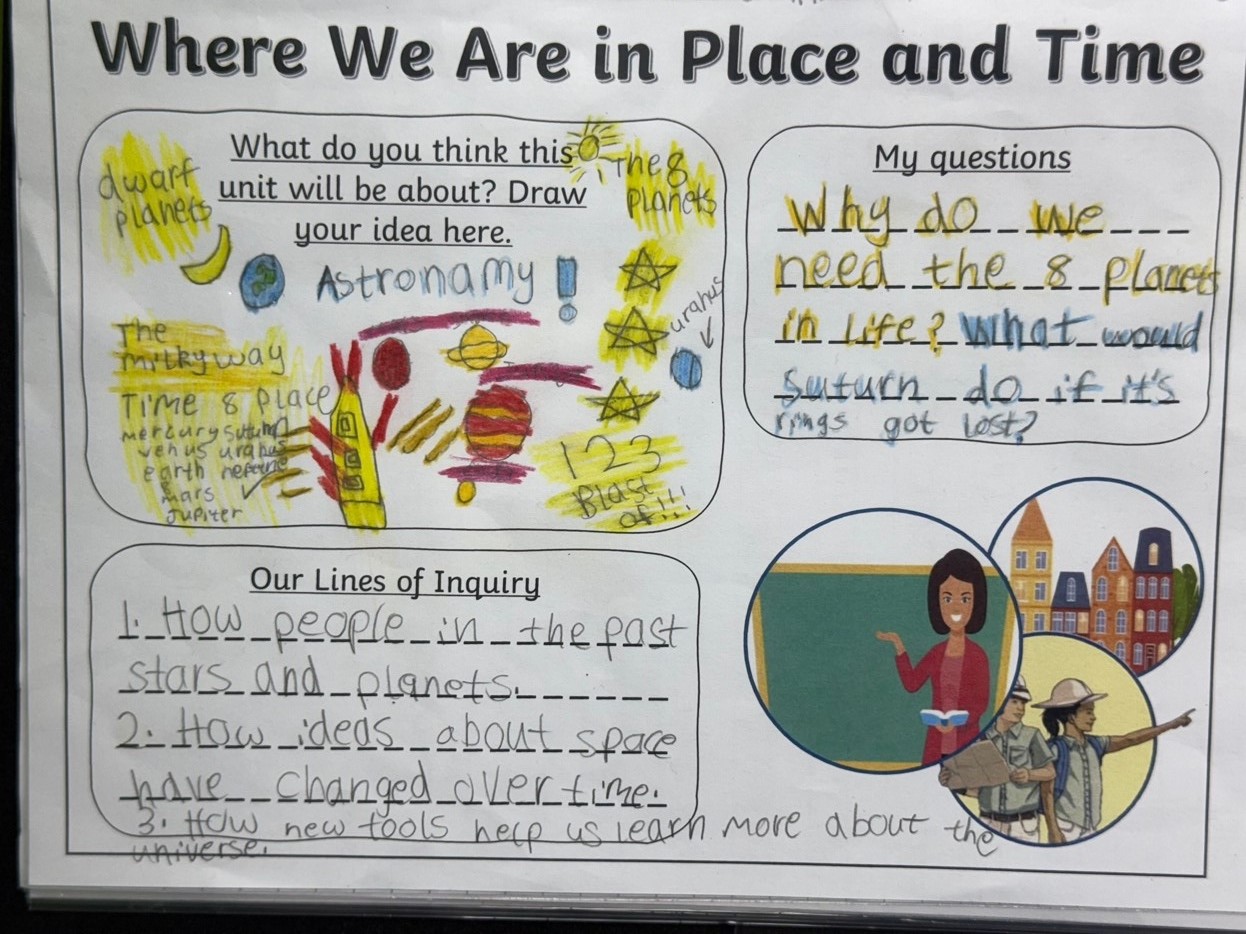 Where We Are in Place and Time
What do you think this
unit will be about? Draw
your idea here.
dwarf
planets
The 8
planets
Astronamy!
uranus
The
milkyway
Time & Place
mercury suturn
venus uranus
earth neptune
mars
Jupiter
123
Blast
of!!!
My questions
Why do we
need the 8 planets
in life? What would
Suturn do if it's
rings got lost?
Our Lines of Inquiry
1. How people in the past
stars and planets.
2. How ideas about space
have changed over time.
3. How new tools help us learn more about the
universe.